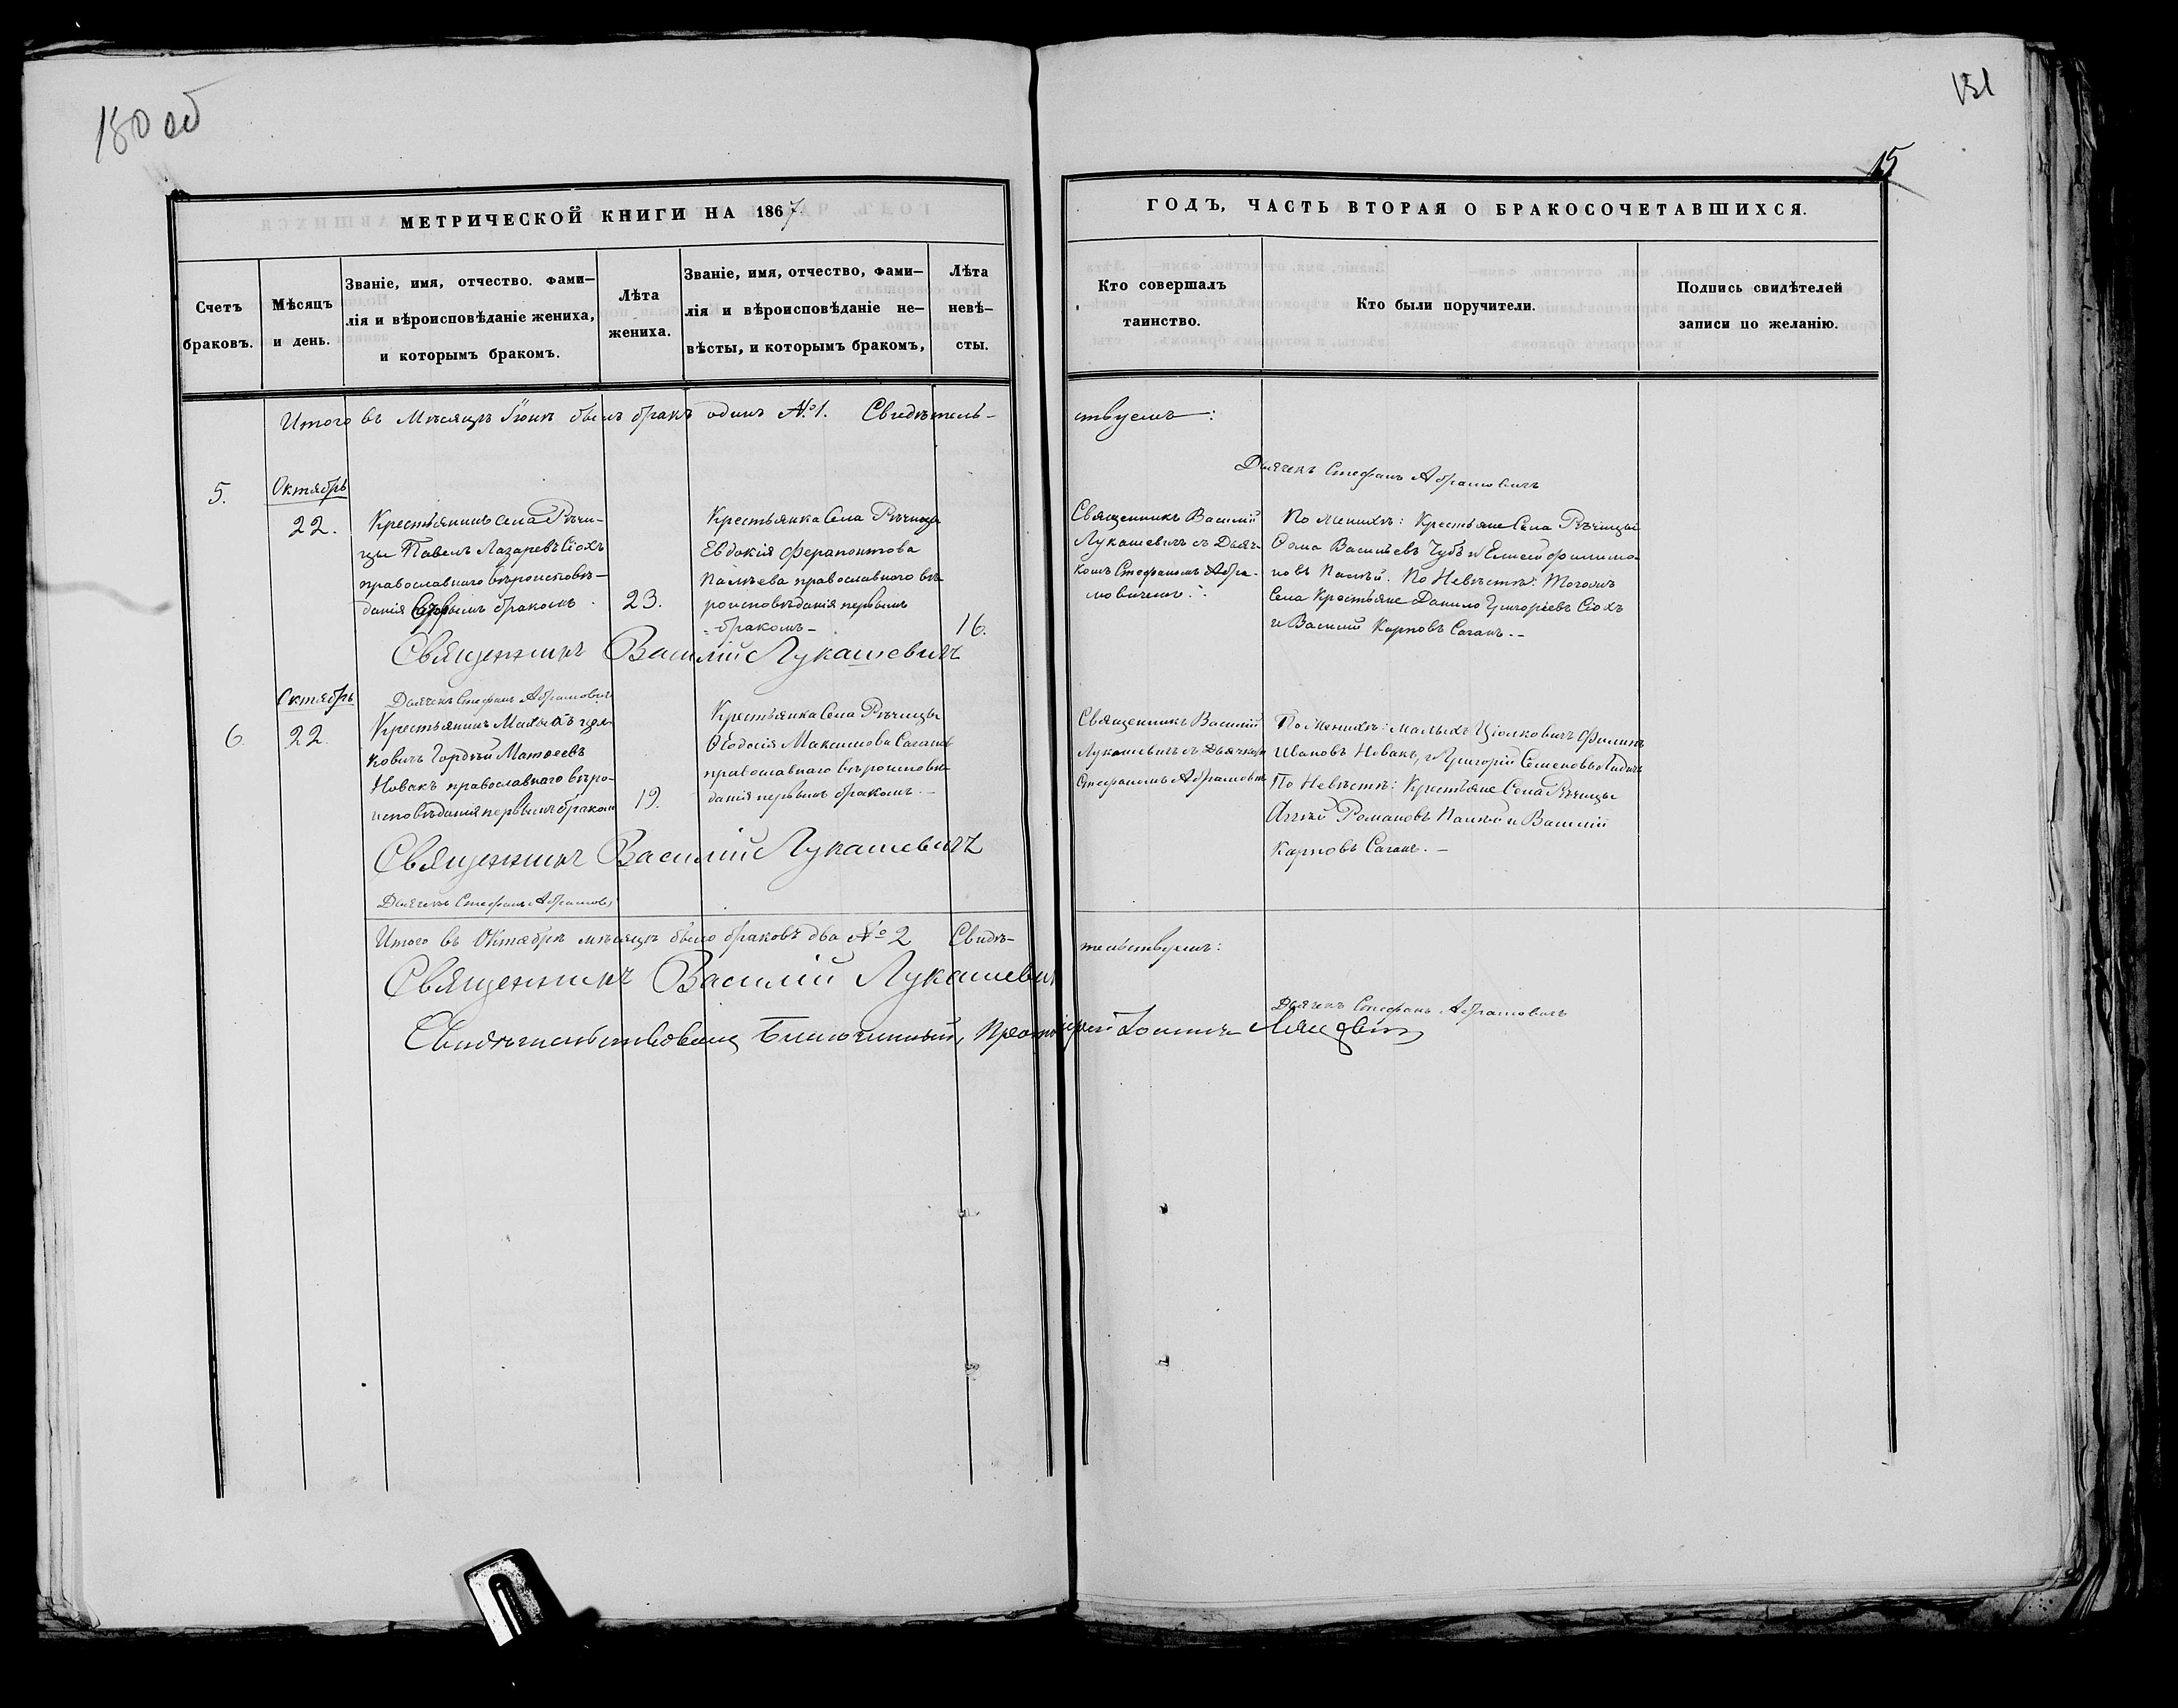 180 об
151
15
МЕТРИЧЕСКОЙ КНИГИ НА 1867
ГОДЪ, ЧАСТЬ ВТОРАЯ О БРАКОСОЧЕТАВШИХСЯ.
Счетъ браковъ.
Мѣсяцъ и день.
Званіе, имя, отчество. фами-
лія и вѣроисповѣданіе жениха,
и которымъ бракомъ.
Лѣта
жениха.
Званіе, имя, отчество, фами-
лія и вѣроисповѣданіе не-
вѣсты, и которымъ бракомъ,
Лѣта
невѣ-
сты.
Кто совершалъ
таинство.
Кто были поручители.
Подпись свидѣтелей
записи по желанію.
Итого въ Мѣсяцѣ Іюнѣ былъ бракъ одинъ №1. Свидѣтель-
ствуемъ:
Дьячекъ Стефанъ Абрамовичъ
5.
Октябрь
22.
Крестьянинъ Села Рѣчи-
цы Павелъ Лазаревъ Сіохъ
православнаго вѣроисповѣ-
данія бракомъ.
23.
Крестьянка Села Рѣчицы
Евдокія Ферапонтова
православнаго вѣ-
роисповѣданія первымъ
бракомъ
16.
Священникъ Василій
Лукашевичъ съ Дьяч-
комъ Стефаномъ Абра-
мовичемъ.
По Женихѣ: Крестьяне Села Рѣчицы
Ѳома Васильевъ Чубъ и Елисей Филимо-
новъ По Невѣстѣ: Тогожъ
Села Крестьяне Данило Григоріевъ Сіохъ
и Василий Карповъ Саганъ.-
Священникъ Василій Лукашевичъ
Дьячекъ Стефанъ Абрамовичъ
6.
Октябрь
22.
Крестьянинъ Малыхъ Ціол-
ковичъ Гордѣй Матѳеевъ
Новакъ православнаго вѣро-
исповѣданія первымъ бракомъ
19.
Крестьянка Села Рѣчицы
Ѳеодосія Максимова Саганъ
православнаго вѣроисповѣ-
данія первымъ бракомъ.-
Священникъ Василій
Лукашевичъ съ Дьячкомъ
Стефаномъ Абрамовичемъ
По Женихѣ: Малыхъ Ціолковичъ Филипъ
Ивановъ Новакъ, и Григорій Семеновъ
По Невѣстѣ: Крестьяне Села Рѣчицы
Романовъ и Василій
Карповъ Саганъ.-
Священникъ Василій Лукашевичъ
Дьячекъ Стефанъ Абрамовъ
Итого въ Октябрѣ мѣсяцѣ было браковъ два №2 Свидѣ-
тельствуемъ:
Священникъ Василій Лукашевичъ
Дьячекъ Стефанъ Абрамовичъ
Свидѣтельствовалъ Благочинный, Протоіерей Іоаннъ